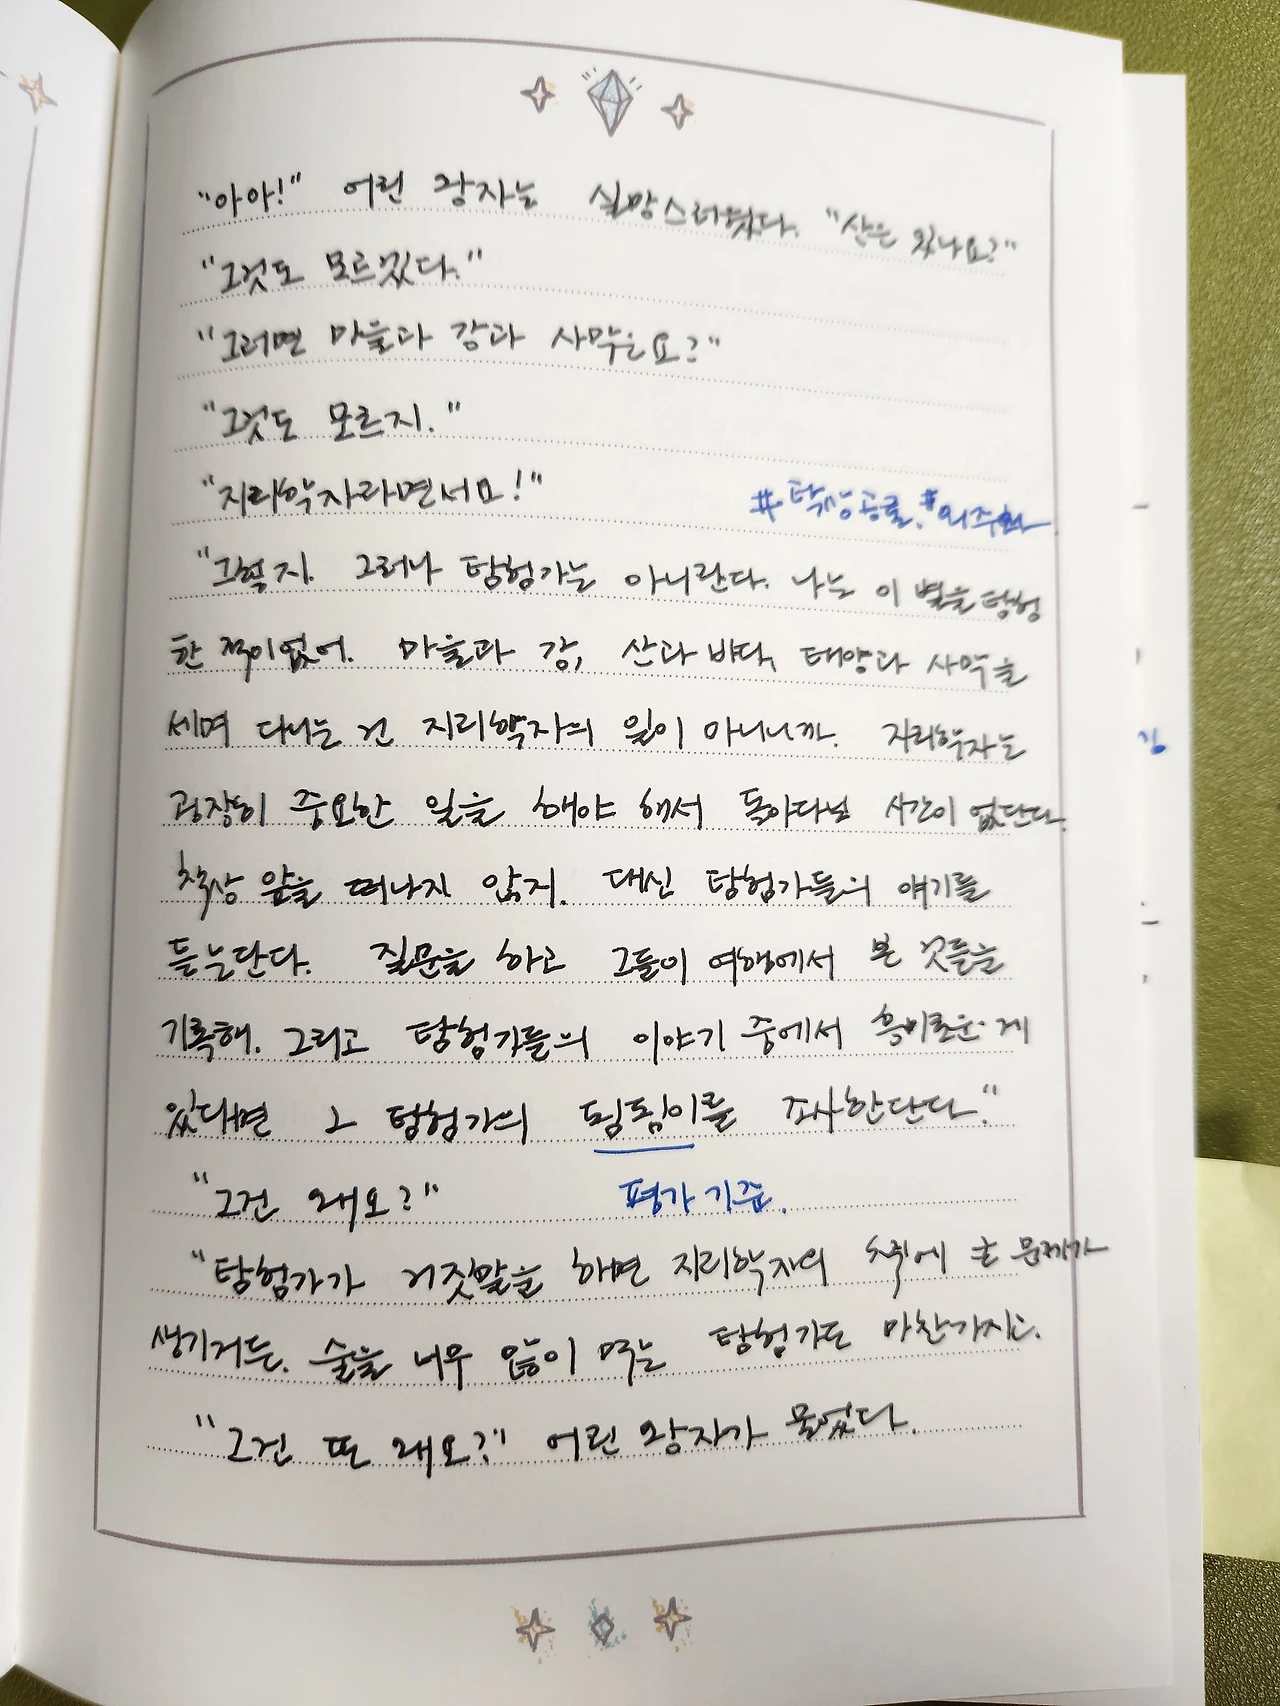 "아아!" 어린 왕자는 실망스러웠다. "산은 있나요?"
"그것도 모르겠다."
"그러면 마을과 강과 사막은요?"
"그것도 모르지."
"지리학자라면서요!"
#탁상공론. #외주화
"그렇지. 그러나 탐험가는 아니란다. 나는 이 별을 탐험
한 적이 없어. 마을과 강, 산과 바다, 태양과 사막을
세며 다니는 건 지리학자의 일이 아니니까. 지리학자는
굉장히 중요한 일을 해야 해서 돌아다닐 시간이 없단다.
책상 앞을 떠나지 않지. 대신 탐험가들의 얘기를
듣는단다. 질문을 하고 그들이 여행에서 본 것들을
기록해. 그리고 탐험가들의 이야기 중에서 흥미로운 게
있다면 그 탐험가의 됨됨이를 조사한단다."
"그건 왜요?"
평가 기준.
"탐험가가 거짓말을 하면 지리학자의 책에 큰 문제가
생기거든. 술을 너무 많이 먹는 탐험가도 마찬가지고.
"그건 또 왜요?" 어린 왕자가 물었다.